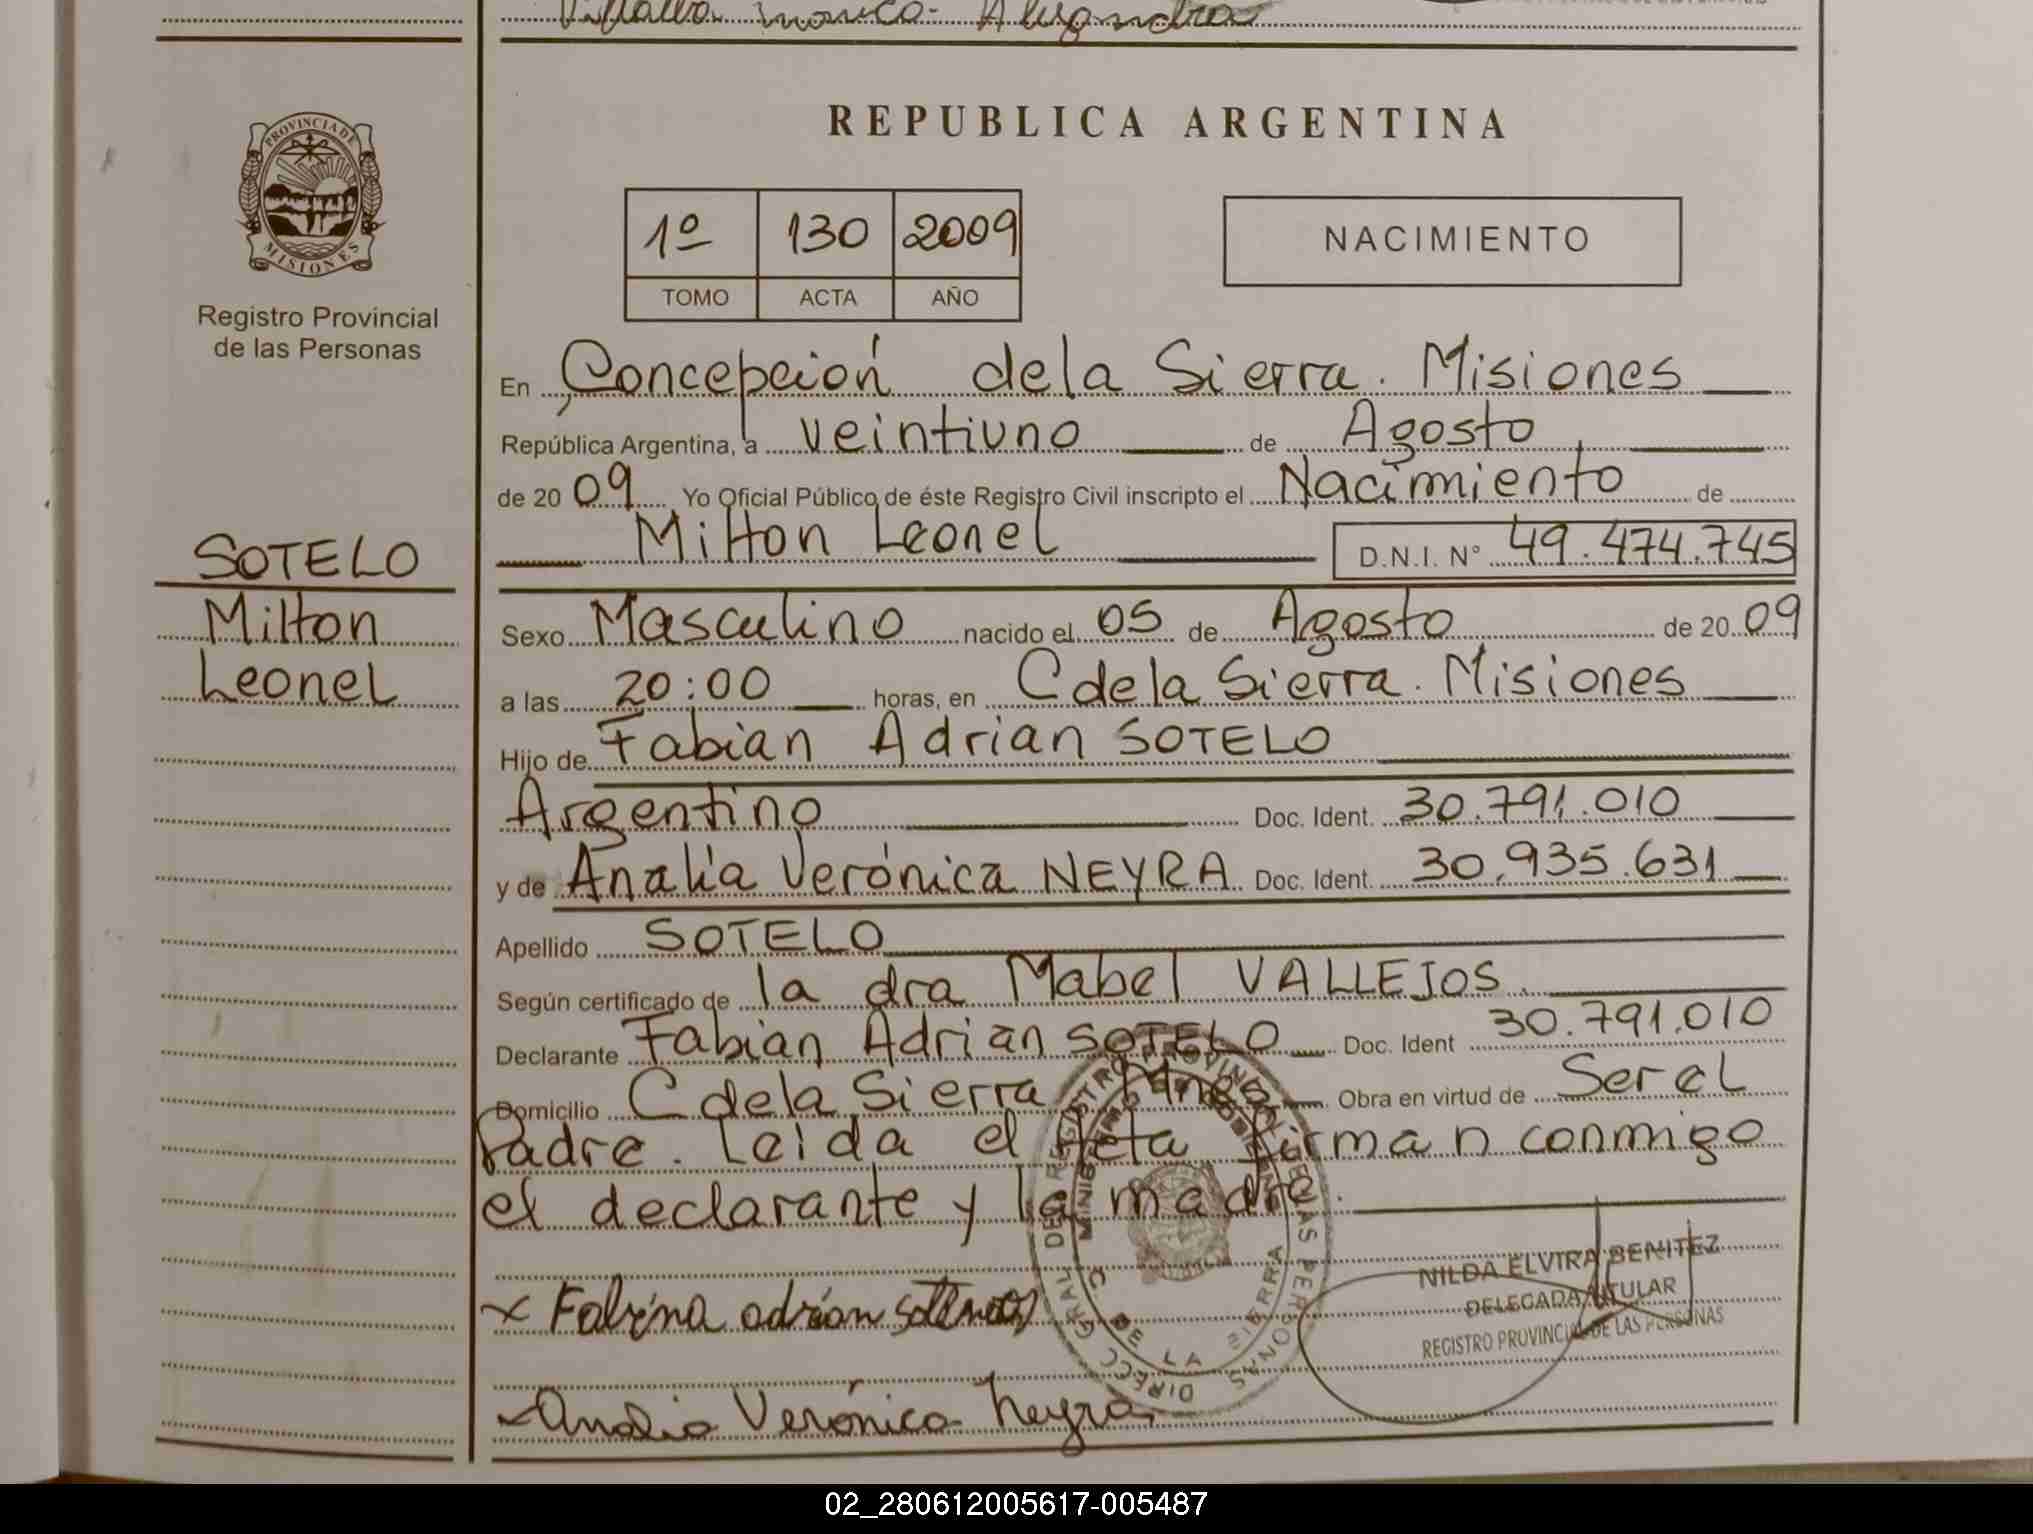 Villalba Monica Alejandra
REPUBLICA ARGENTINA
PROVINCIA DE
MISIONES
Registro Provincial
de las Personas
1º 130 2009
TOMO ACTA AÑO
NACIMIENTO
En Concepción dela Sierra. Misiones
República Argentina, a veintiuno de Agosto
de 20 09 Yo Oficial Público de éste Registro Civil inscripto el Nacimiento de
Milton Leonel D.N.I. N° 49.474.745
SOTELO
Milton
Leonel
Sexo Masculino nacido el 05 de Agosto de 20 09
a las 20:00 horas, en C dela Sierra. Misiones
Hijo de Fabian Adrian SOTELO
Argentino Doc. Ident. 30.791.010
y de Analía Verónica NEYRA Doc. Ident. 30.935.631
Apellido SOTELO
Según certificado de la dra Mabel VALLEJOS.
Declarante Fabian Adrian SOTELO Doc. Ident 30.791.010
Domicilio C dela Sierra Mnes Obra en virtud de Ser el
Padre. Leida el Acta firman conmigo
el declarante y la madre.
NILDA ELVIRA BENITEZ
DELEGADA TITULAR
REGISTRO PROVINCIAL DE LAS PERSONAS
x adrian
DIRECC GRAL DE REGISTRO PROVINCIAL DE LAS PERSONAS
C. DE LA SIERRA
Analia Verónica Neyra
02_280612005617-005487